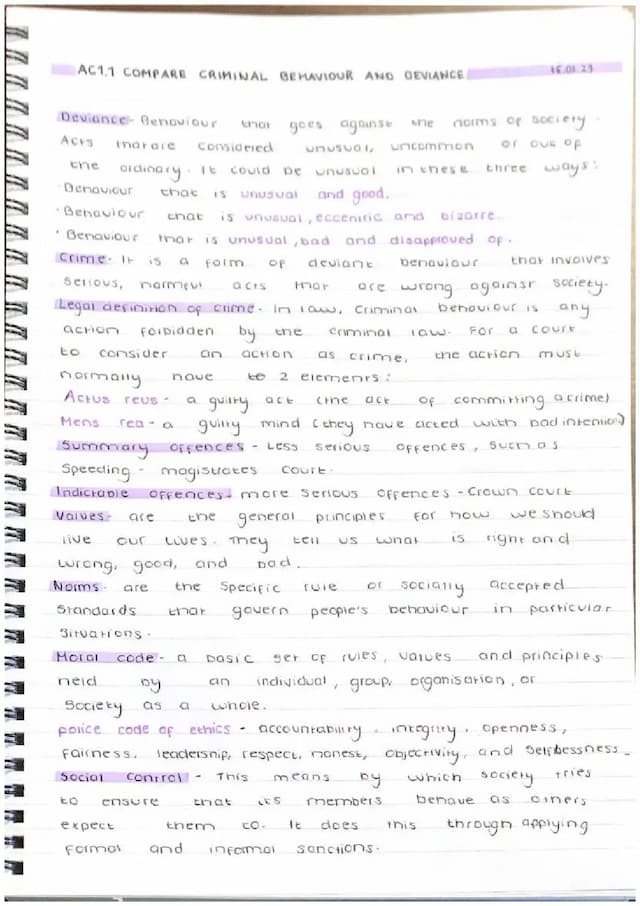 AC1.1 COMPARE CRIMINAL BEHAVIOUR AND DEVIANCE 16.01.23
Deviance - Behaviour that goes against the norms of society.
Acts that are considered unusual, uncommon or out of
the ordinary. It could be unusual in these three ways:
· Behaviour that is unusual and good.
· Behaviour that is unusual, eccentric and bizarre
· Behaviour that is unusual, bad and disapproved of.
Crime - It is a form of deviant behaviour that involves
serious, harmful acts that are wrong against society.
Legal definition of crime - In law, criminal behaviour is any
action forbidden by the criminal law. For a court
to consider an action as crime, the action must
normally have to 2 elements:
Actus reus - a guilty act (the act of committing a crime)
Mens rea - a guilty mind (they have acted with bad intention)
Summary offences - Less serious offences, such as
Speeding - magistrates court.
Indictable offences - more serious offences - Crown court
Values - are the general principles for how we should
live our lives. They tell us what is right and
wrong, good, and bad.
Norms - are the specific rule or socially accepted
standards that govern people's behaviour in particular
situations.
Moral code - a basic set of rules, values and principles
held by an individual, group, organisation, or
society as a whole.
police code of ethics - accountability, integrity, openness,
fairness, leadership, respect, honest, objectivity, and selflessness
Social control - This means by which society tries
to ensure that its members behave as others
expect them to. It does this through applying
formal and informal sanctions.